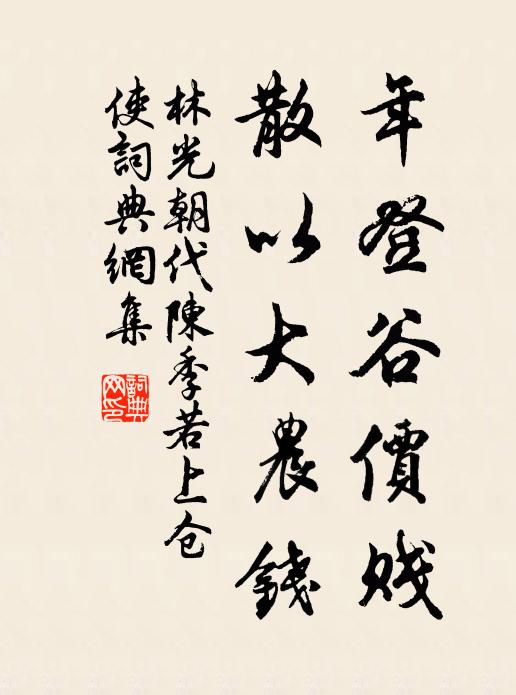 年登谷價賤
散以大農錢
林光朝代陳季若上仓
使詞典網集
詞典網印